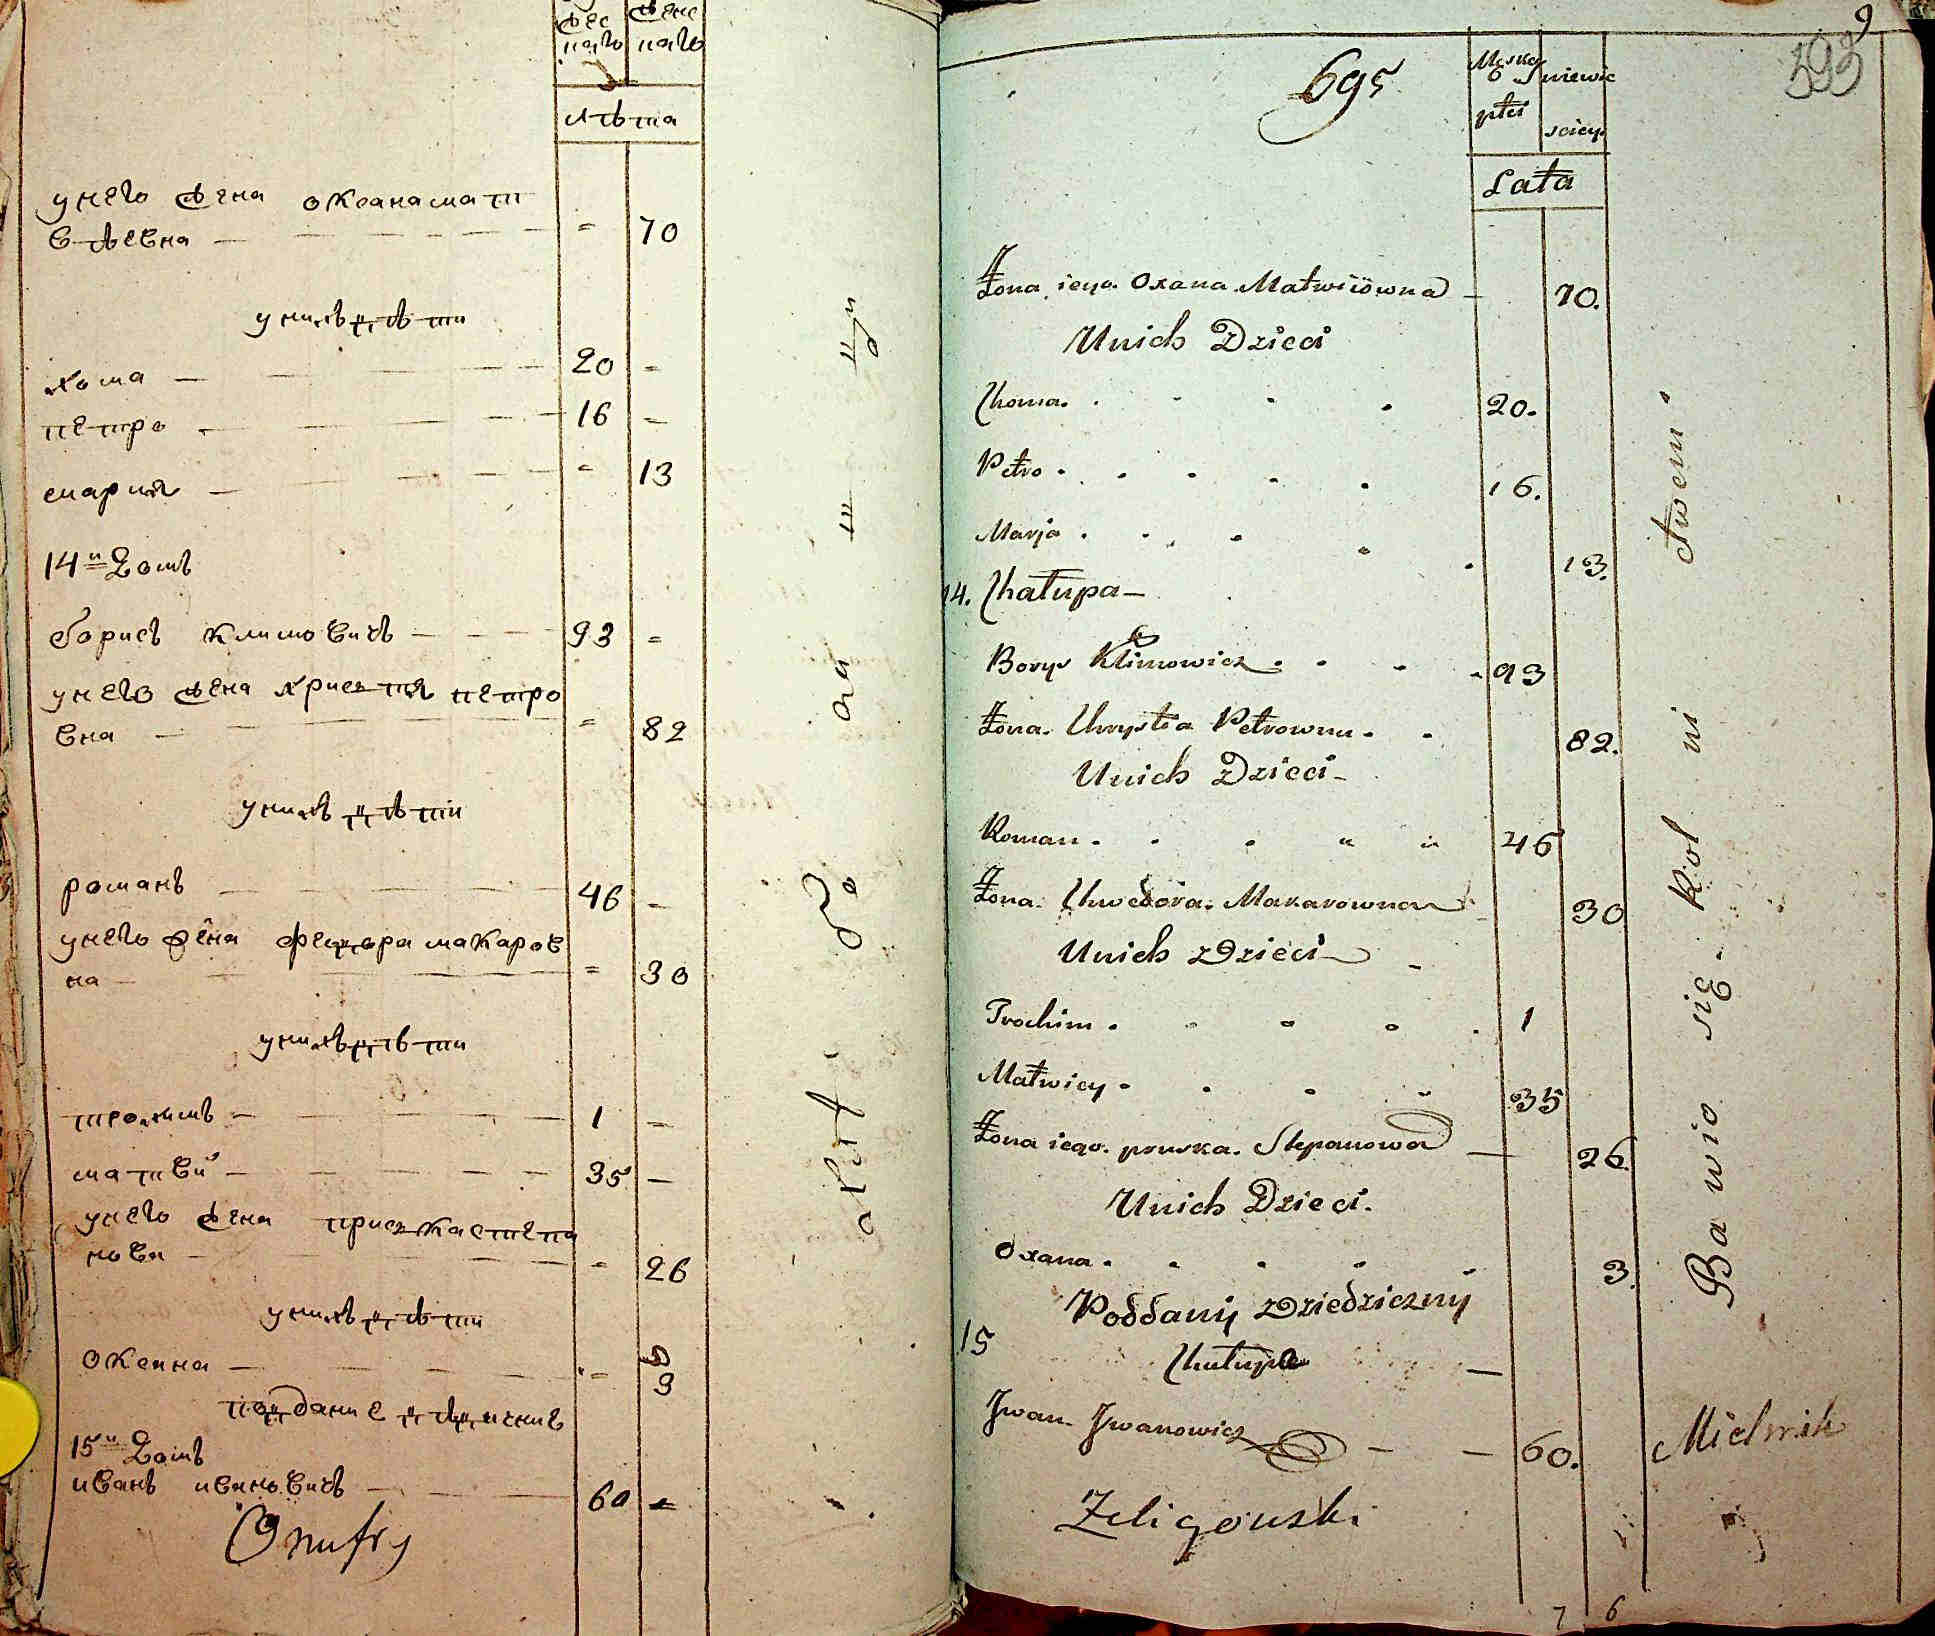 лѣта
у него жена оксана мат
вѣевна — = 70
у нихъ дѣти
хома — 20 =
петро — 16 =
мария — = 13
14й Домъ
борисъ климовичъ — 93 =
у него жена христя петро
вна — = 82
у нихъ дѣти
романъ — 46 —
у него жена федора макаров
на — = 30
у нихъ дѣти
трохимъ — 1 —
матвий — 35 —
у него жена приська степа
нова — = 26
у нихъ дѣти
оксана — = 3
15й Домъ
иванъ ивановичъ — 60 =
Onufry
9
393
695
Męskey płci
niewie sciey
Lata
Żona iego Oxana Matwiiowna — 70.
Unich Dzieci
Choma. 20.
Petro. 16.
Marja. 13.
14. Chałupa —
Borys Klimowicz. 93
Żona. Chrysta Petrowna. 82.
Unich Dzieci —
Roman. 46
Żona. Chwedora. Makarowna 30
Unich Dzieci —
Trochim. 1
Matwiey. 35
Żona iego. pruska. Stepanowa — 26.
Unich Dzieci.
Oxana. 3.
Poddany Dziedziczny
15 Chałupa —
Iwan Iwanowicz — 60.
Zeligowski
Bawio się. Rol ni ctwem.
7 6